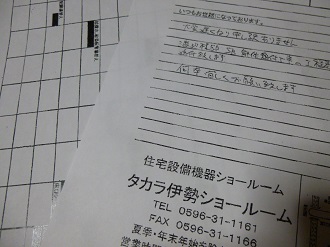 いつもお世話になっております。
大変遅くなり申し訳ありません
送付致します
何卒宜しくお願い致します
住宅設備機器ショールーム
タカラ伊勢ショールーム
TEL 0596-31-1161
FAX 0596-31-1166
夏季・年末年始を
営業時間